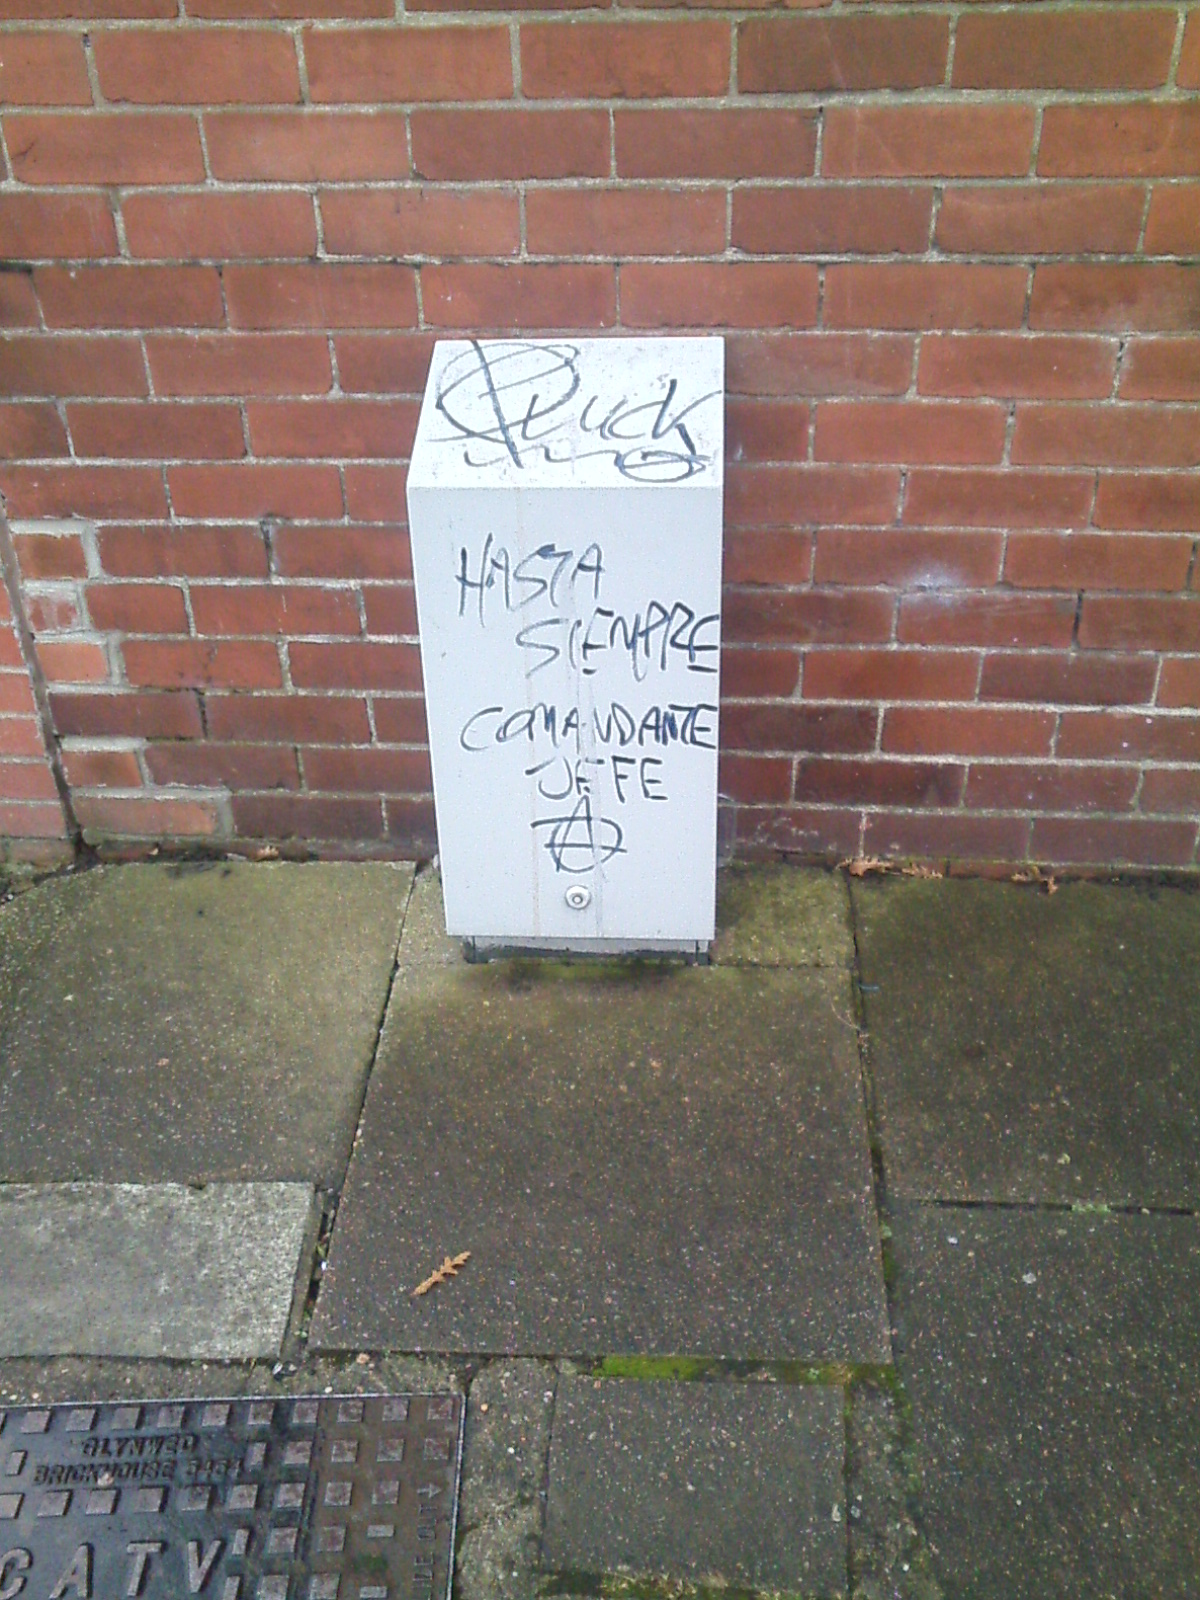 HASTA
SIEMPRE
COMANDANTE
JEFE
GLYNWED
BRICKHOUSE
CATV